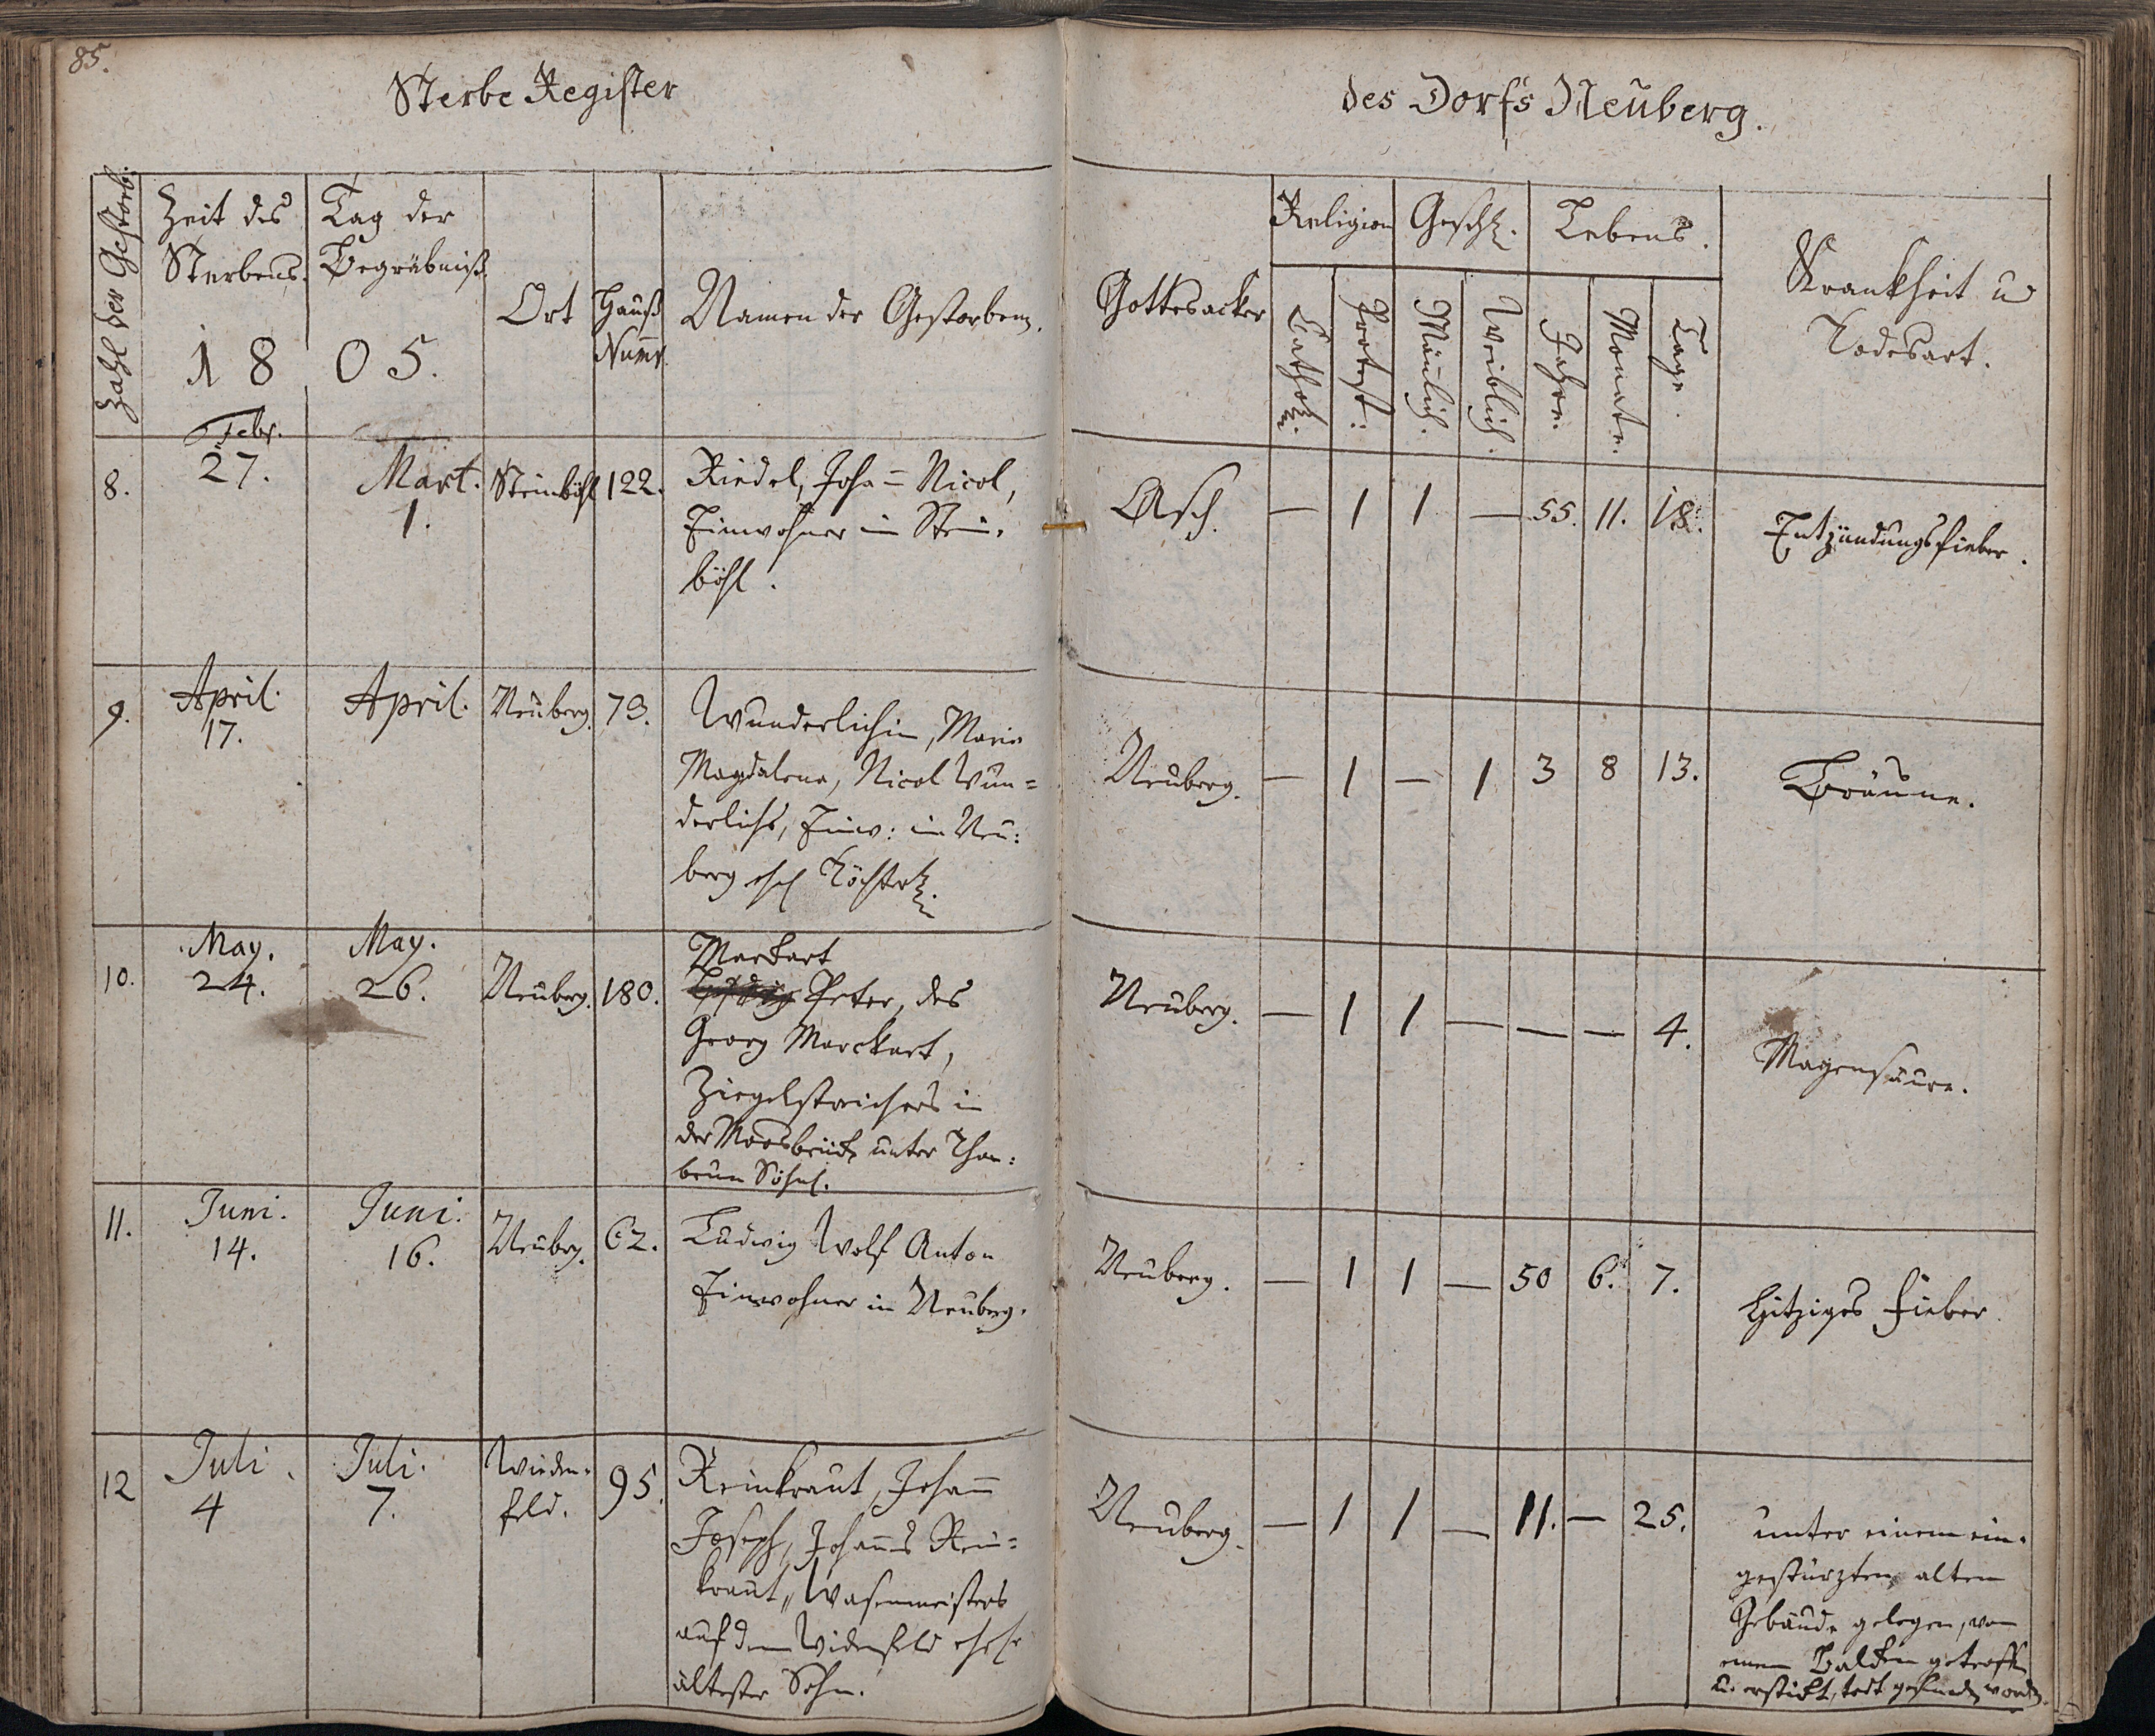 85.
Sterbe Register
des Dorfs Neuberg.
Zahl der Gestorb:
Zeit des
Sterbens.
Tag der
Begräbniß.
1805.
Ort
Hauß
Num̅r.
Namen der Gestorben.
Gottesacker
Religion
Cathol.
Protest:
Geschl.
Mänlich.
Weiblich.
Lebens.
Jahre.
Monate.
Tage.
Krankheit u
Todesart.
8.
Febr.
27.
Mart.
1.
Steinböhl
122.
Riedel, Joha= Nicol,
Einwohner in Stein.
böhl.
Asch.
— 1 1 — 55. 11. 18.
Entzündungsfieber.
9.
April.
17.
April.
Neuberg.
73.
Wunderlichin, Maria
Magdalena, Nicol Wun=
derlichs, Einw: in Neu:
berg ehel Töchterl.
Neuberg.
— 1 — 1 3 8 13.
Bräune.
10.
May.
24.
May.
26.
Neuberg.
180.
Markart
Peter, des
Georg Marckart,
Ziegelstreichers in
der Moosbrück unter Than:
brun Söhnl.
Neuberg.
— 1 1 — — — 4.
Magensäure.
11.
Juni.
14.
Juni.
16.
Neuberg.
62.
Ludwig Wolf Anton
Einwohner in Neuberg.
Neuberg.
— 1 1 — 50 6. 7.
hitziges Fieber.
12
Juli.
4
Juli.
7.
Wieden.
feld.
95.
Reinkraut, Johan̅
Joseph, Johan̅s Rein=
kraut, Wasenmeisters
auf dem Widenfeld ehel
ältester Sohn.
Neuberg.
— 1 1 — 11. — 25.
unter einem ein.
gestürzten alten
Gebäude gelegen, von
einem Balken getroffen
u. erstickt, todt gefunden worden.